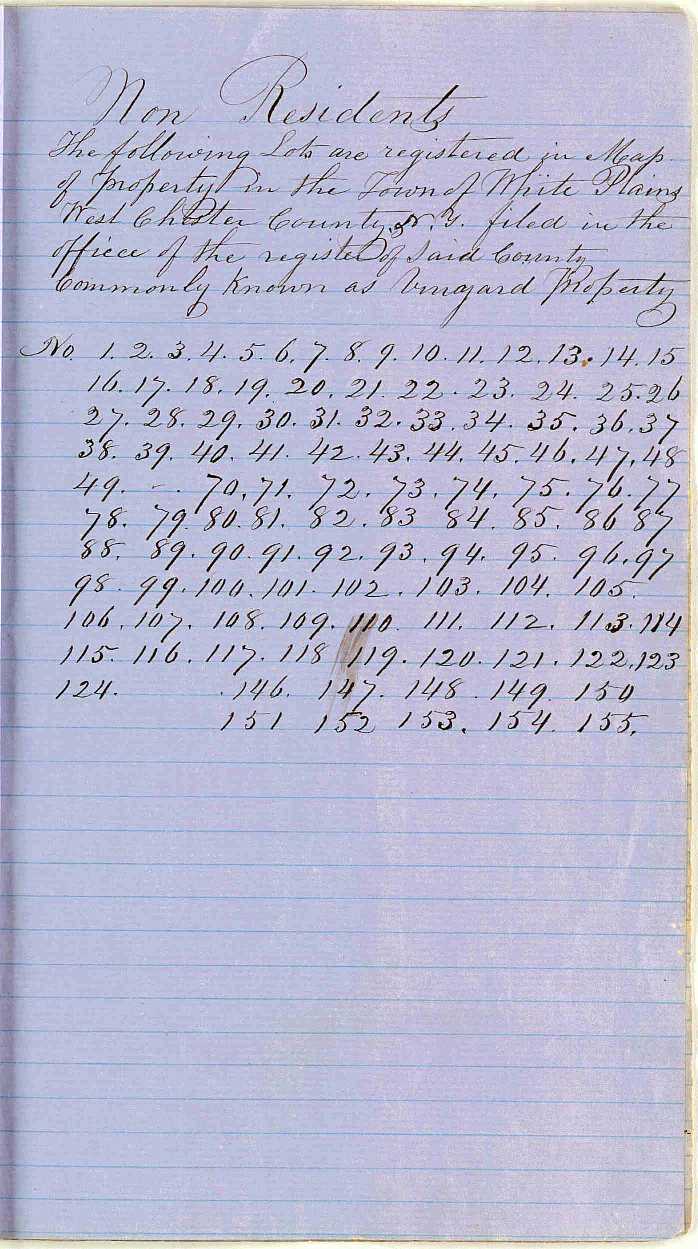 Non Residents
The following Lots are registered in Map
of property in the Town of White Plains
West Chester County N. Y. filed in the
offiece of the register of said County
Commonly Known as Vinyard Property
No. 1. 2. 3. 4. 5. 6. 7. 8. 9. 10. 11. 12. 13. 14. 15
16. 17. 18. 19. 20. 21. 22. 23. 24. 25. 26
27. 28. 29. 30. 31. 32. 33. 34. 35. 36. 37
38. 39. 40. 41. 42. 43. 44. 45. 46. 47. 48
49. - . 70. 71. 72. 73. 74. 75. 76. 77
78. 79. 80. 81. 82. 83 84. 85. 86 87
88. 89. 90. 91. 92. 93. 94. 95. 96. 97
98. 99. 100. 101. 102. 103. 104. 105.
106. 107. 108. 109. 110. 111. 112. 113. 114
115. 116. 117. 118 119. 120. 121. 122. 123
124. . 146. 147. 148. 149. 150
151 152 153. 154. 155.